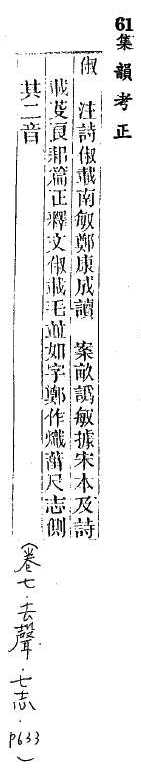 61
集韻考正
俶　注詩俶載南敏鄭康成讀　案畝譌敏據宋本及詩
載芟良耜篇正釋文俶載毛並如字鄭作熾菑尺志側
其二音
（卷七．去聲．七志．p633）